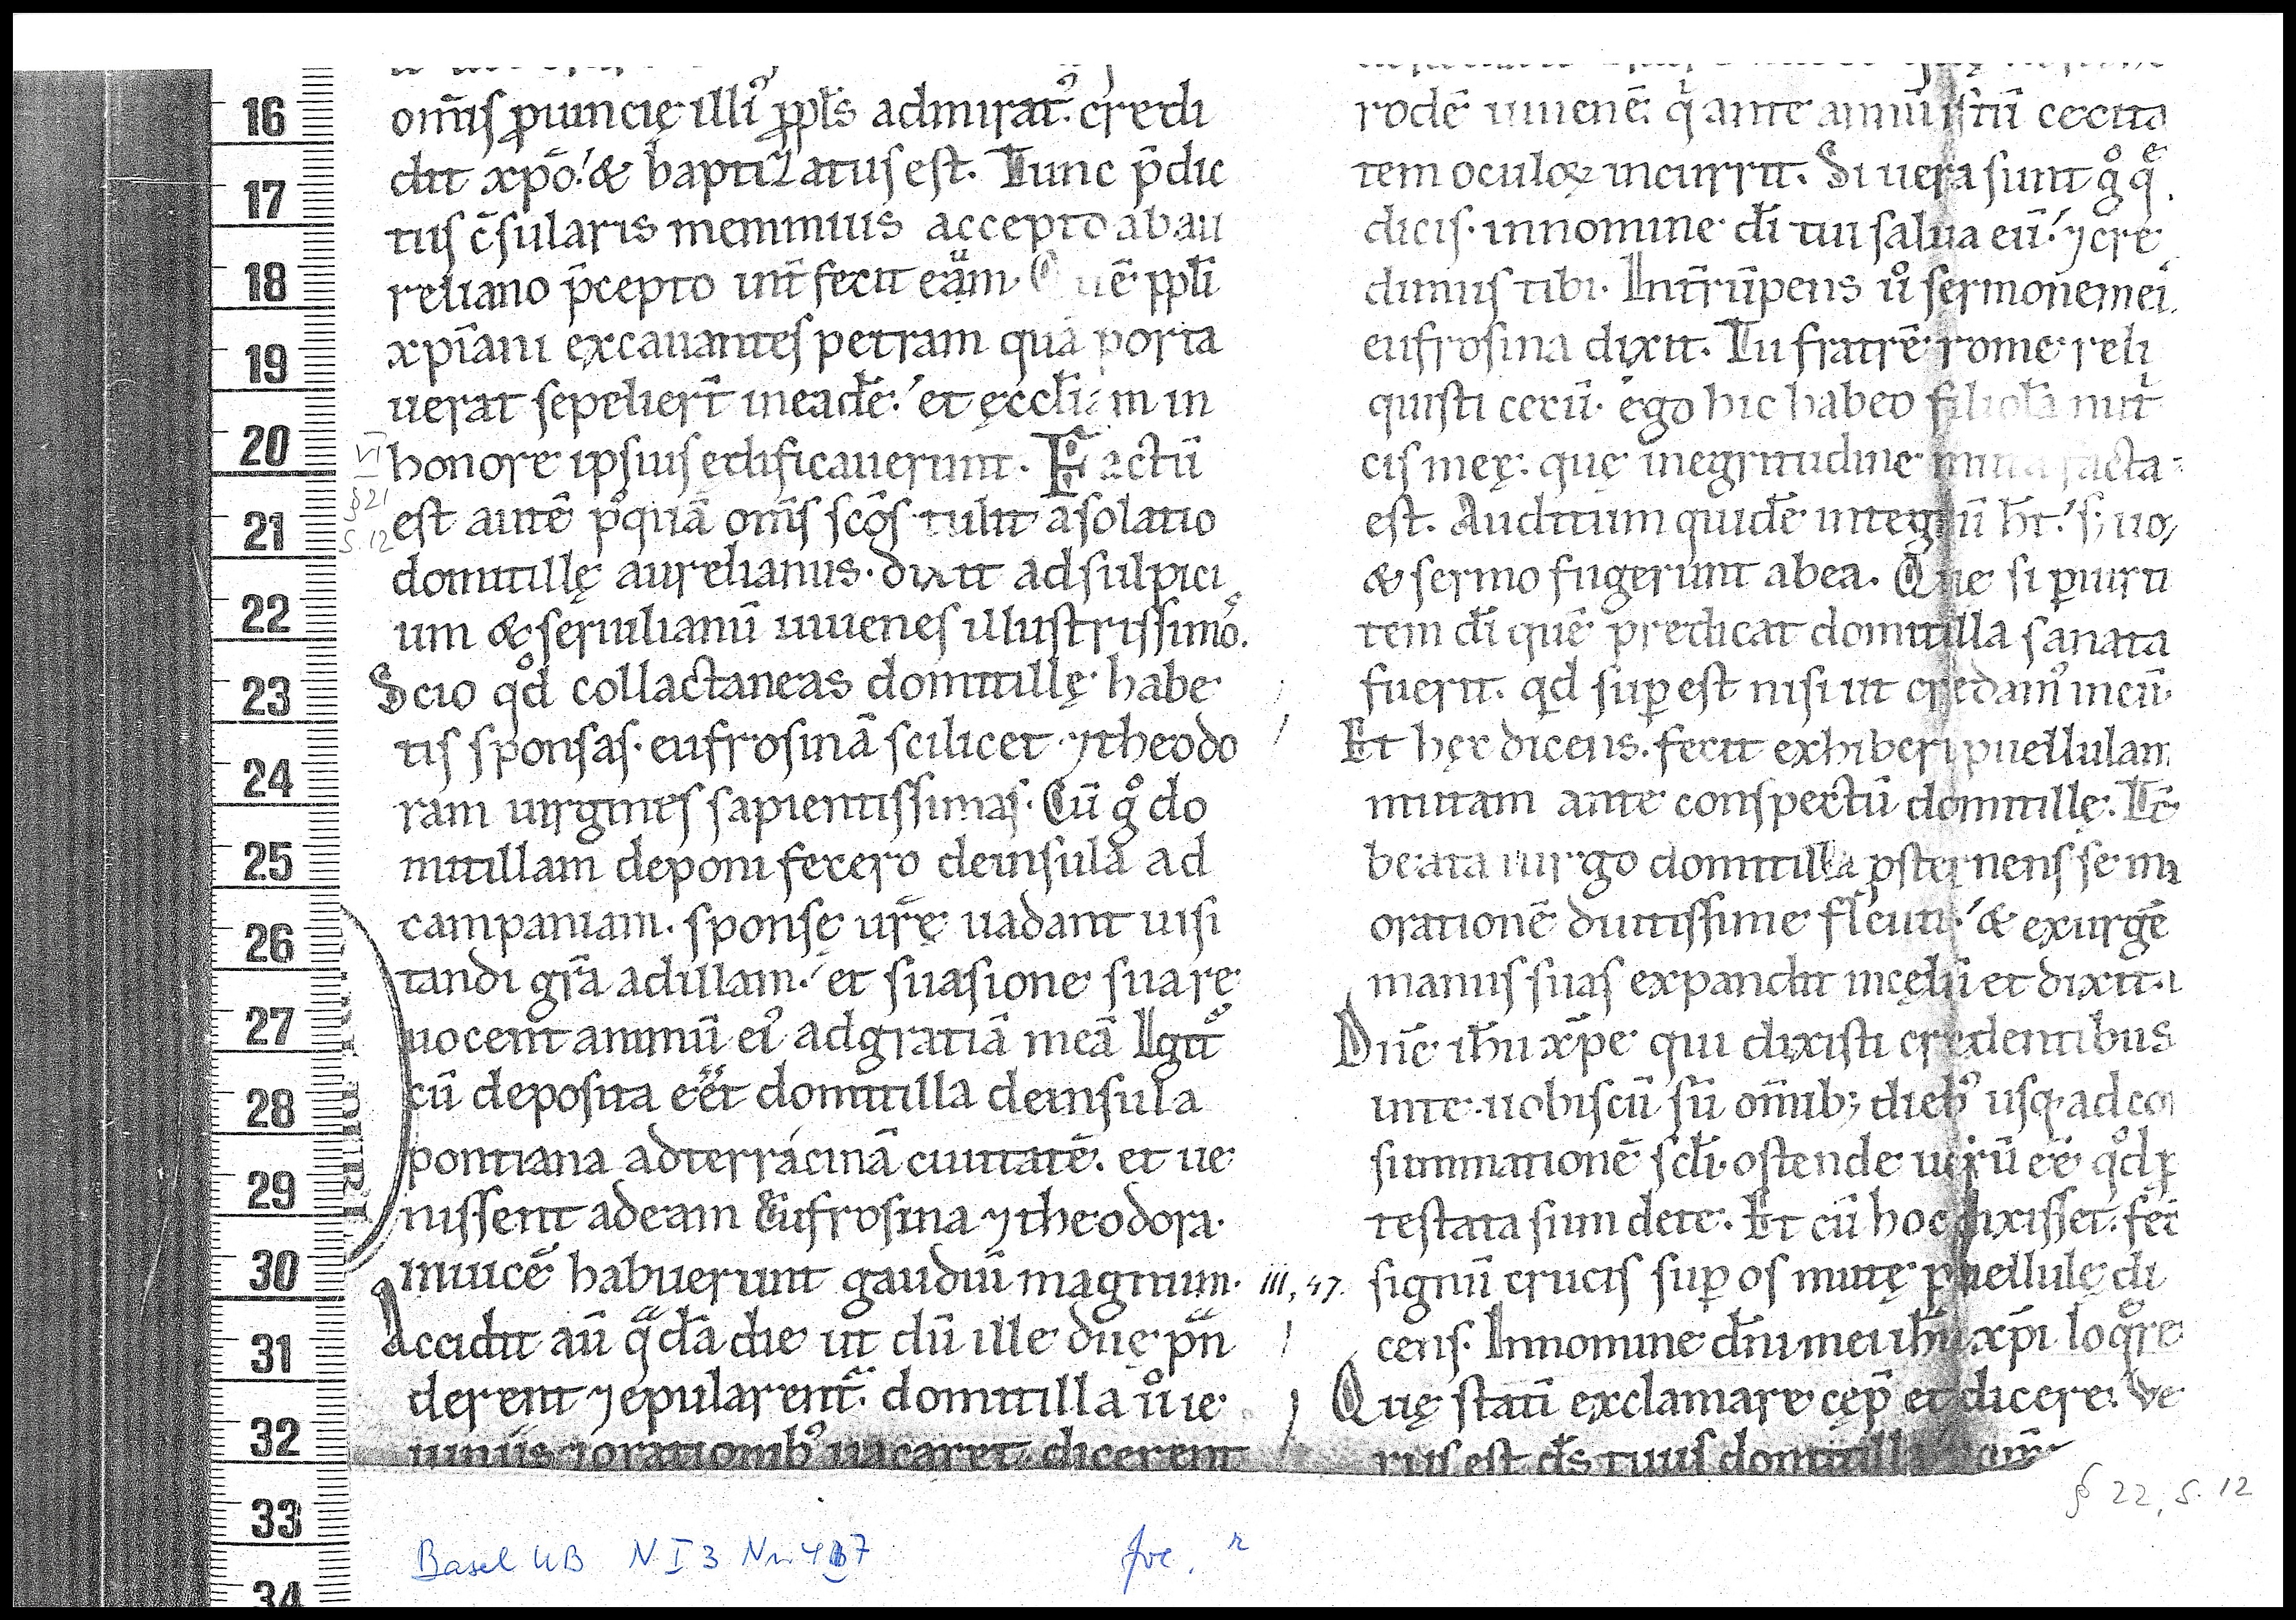 om̄is ꝓuincię illiꝰ pp̄ls admiratꝰ credi
dit xp̄o. & baptizatus est. Tunc p̄dic
tus c̄sularis memmius accepto ab au
reliano p̄cepto int̄fecit eām. uē pp̄li
xp̄iani excauantes petram quā porta
uerat sepeliert̄ in eadē. et ęccl̄iam in
honore ipsius edificauerunt. Factū
est autē pꝰquā om̄s sc̄os tulit a solatio
domitillę aurelianus. dixit ad sulpici
um & seruilianū iuuenes illustrissimos.
Scio qd̊ collactaneas domitillę habe
tis sponsas. eufrosinā scilicet ⁊ theodo
ram uirgines sapientissimas. Cū g̊ do
mitillam deponi fecero de insula ad
campaniam. sponsę ur̄ę uadant uisi
tandi gr̄a ad illam. et suasione sua re
uocent animū eiꝰ ad gratiā meā Igit̄
cū deposita eēt domitilla de insula
pontiana ad terracinā ciuitatē. et ue
nissent ad eam Eufrosina ⁊ theodora.
inuicē habuerunt gaudiū magnum.
Accidit aū qͣdā die ut dū ille due pn̄
derent ⁊ epularent̄. domitilla ů ie
iuniis ⁊ orationibꝰ uacaret. dicerent
rodē iuuenē. qͥ ante annū istū cecita
tem oculoꝝ incurrit. Si uera sunt g̊ qͤ
dicis. in nomine dī tui salua eū. ⁊ cre
dimus tibi. Int̄rūpens ů sermonem ei
eufrosina dixit. Tu fratrē rome reli
quisti cecū. ego hic habeo filiolā nut̄
cis meę. quę in egritudine muta facta
est. Auditum quidē integrū ht̄. s; uo
& sermo fugerunt ab ea. Que si ꝑ uirtu
tem dī quē predicat domitilla sanata
fuerit. qͥd suꝑest nisi ut credamꝰ in eū.
Et hęc dicens. fecit exhiberi puellulam
mutam ante conspectū domitillę. Tc̄
beata uirgo domitilla ꝓsternens se in
orationē diutissime fleuit. & exurgē
manus suas expandit in cęlū et dixit.
Dn̄e ih̄u xp̄e qui dixisti credentibus
in te. uobiscū sū om̄ib; diebꝰ usq; ad co
summationē sc̄li. ostende uerū eē qd̊ ꝓ
testata sum de te. Et cū hoc dixisset. fec̄
signū crucis suꝑ os mutę puellulę di
cens. In nomine dn̄i mei ih̄u xp̄i loqͣre
Quę statī exclamare cęp̄ et dicere. Ve
rus est d̄s tuus domitilla
VI
§21
S. 12
iii, 47.
§ 22, S. 12
Basel UB N I 3 Nr.
16
17
18
19
20
21
22
23
24
25
26
27
28
29
30
31
32
33
34